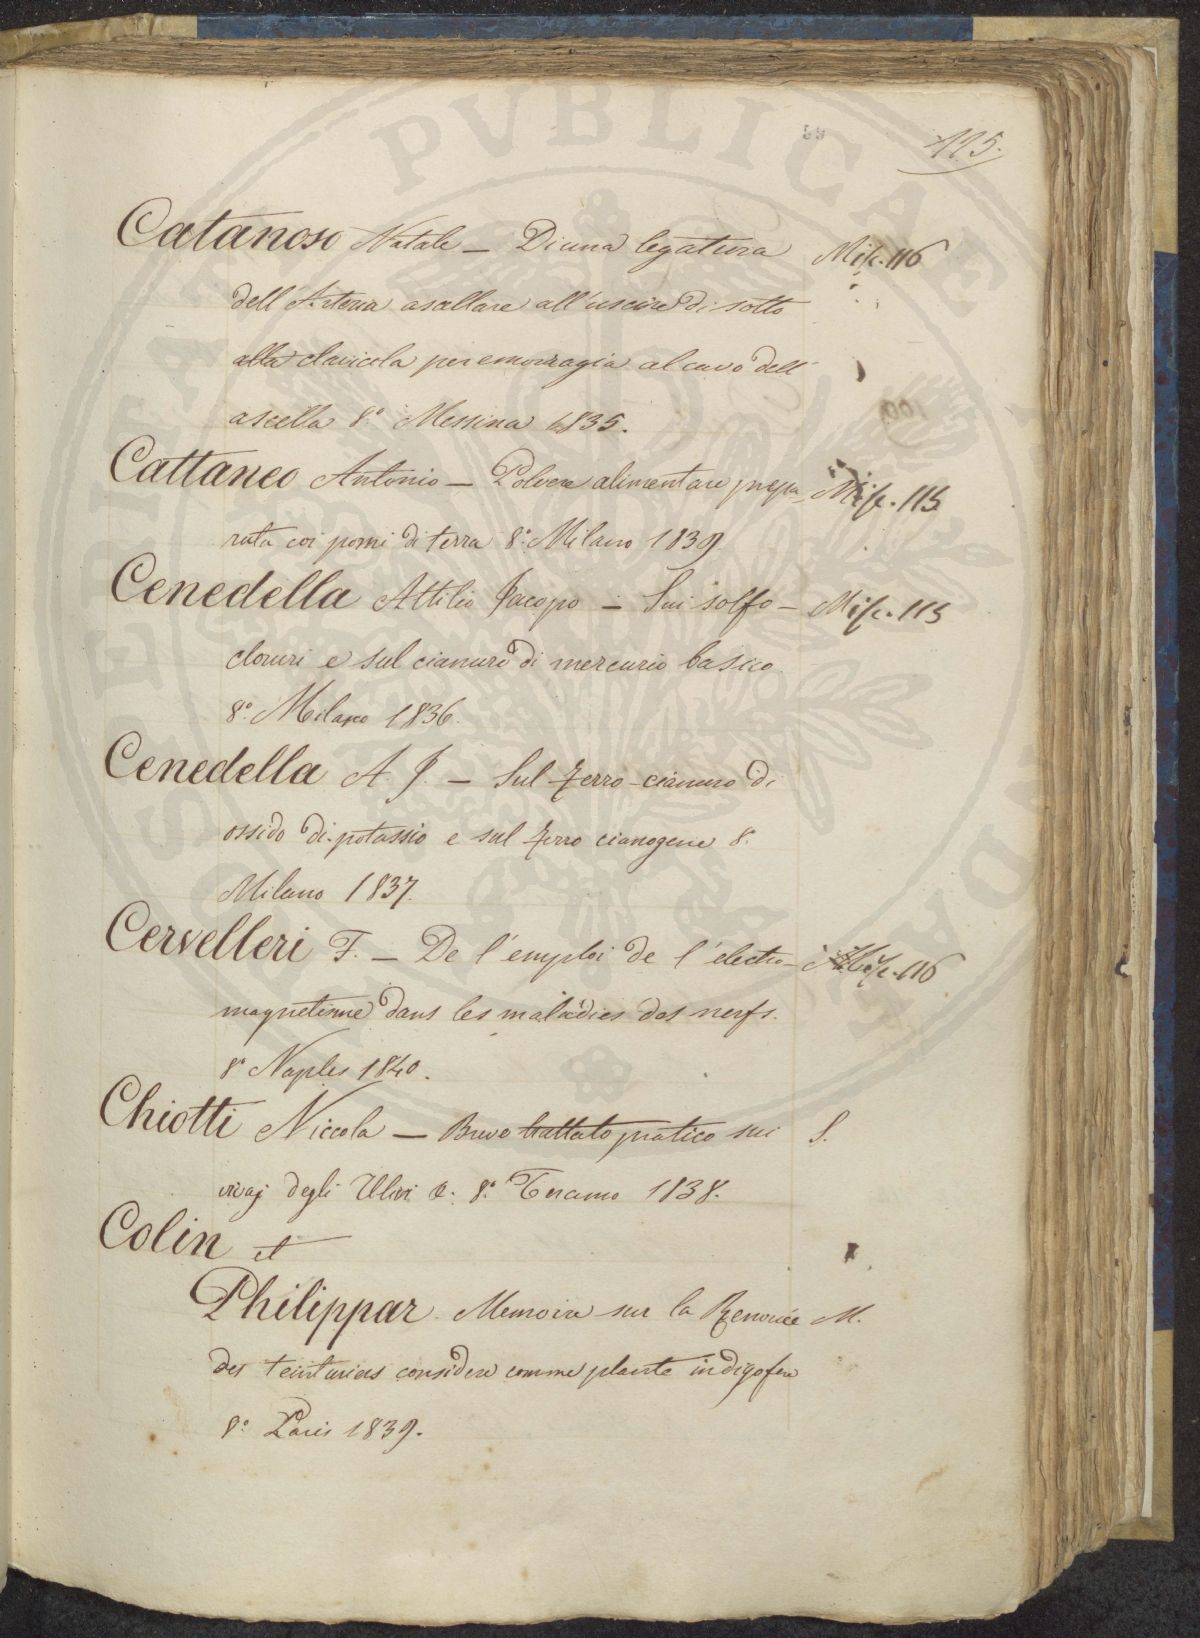 115.
Catanoso Natale – Di una legatura Misc. 116
dell'Arteria ascellare all'uscire di sotto
alla clavicola per emorragia al cavo dell'
ascella 8.° Messina 1835.
Cattaneo Antonio – Polvere alimentare prepa- Misc. 115
rata coi pomi di terra 8.° Milano 1839
Cenedella Attilio Jacopo – Sui solfo- Misc. 115
cloruri e sul cianuro di mercurio basico
8.° Milano 1836.
Cenedella A. J. – Sul ferro-cianuro di
ossido di potassio e sul ferro cianogene 8.
Milano 1837.
Cervelleri F. – De l'emploi de l'electro- Misc. 116
magnetisme dans les maladies des nerfs.
8.° Naples 1840.
Chiotti Niccola – Breve trattato pratico sui S.
vivaj degli Ulivi &. 8.° Teramo 1838.
Colin et
Philippar. Memoire sur la Renouée M.
des teinturiers considere comme plante indigofere
8.° Paris 1839.